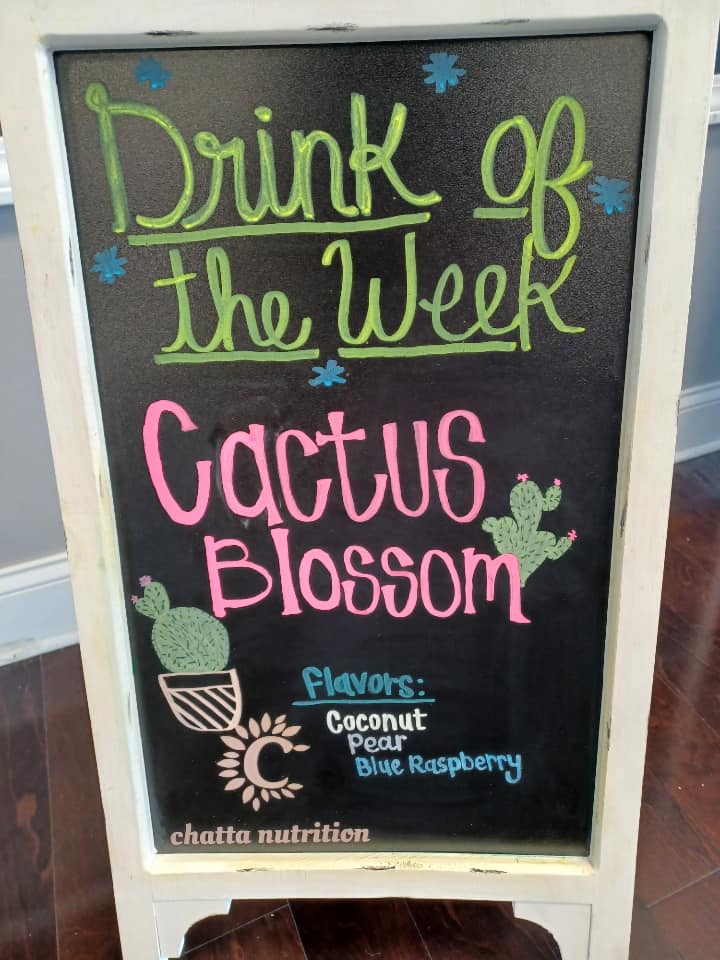 Drink of
the Week
Cactus
Blossom
Flavors:
Coconut
Pear
Blue Raspberry
C
chatta nutrition